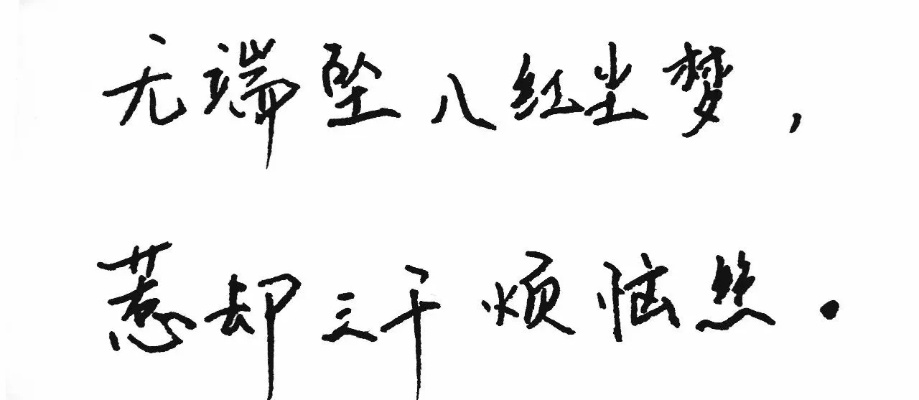 无端坠入红尘梦，
惹却三千烦恼丝。